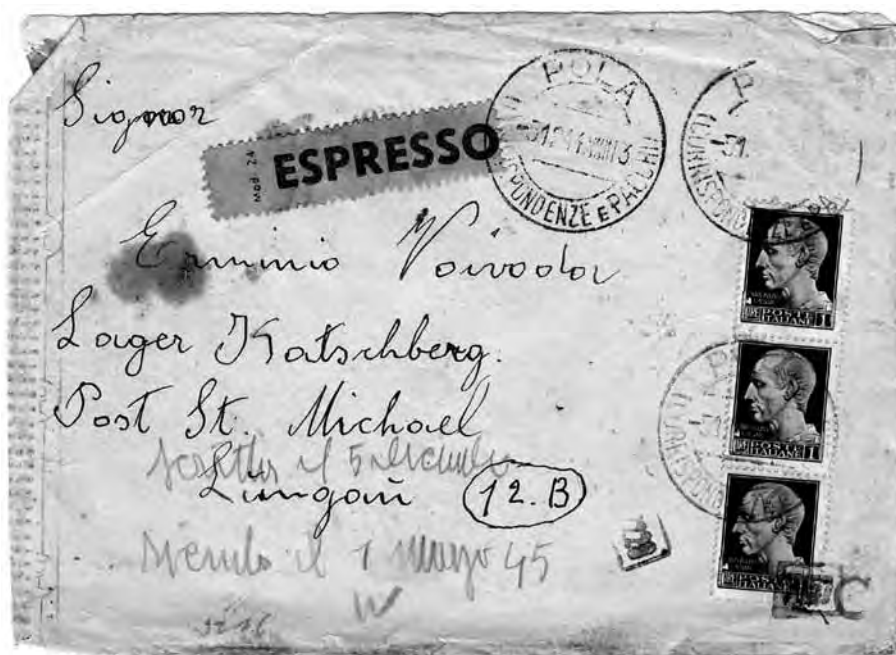 Signor
Mod. 24
ESPRESSO
POLA
CORRISPONDENZE E PACCHI
Erminio Voivoda
Lager Katschberg.
Post St. Michael
il 5 dicembre
Lungau 12.B
il 1 marzo 45
POSTE
ITALIANE 1
POSTE
ITALIANE 1
POSTE
ITALIANE